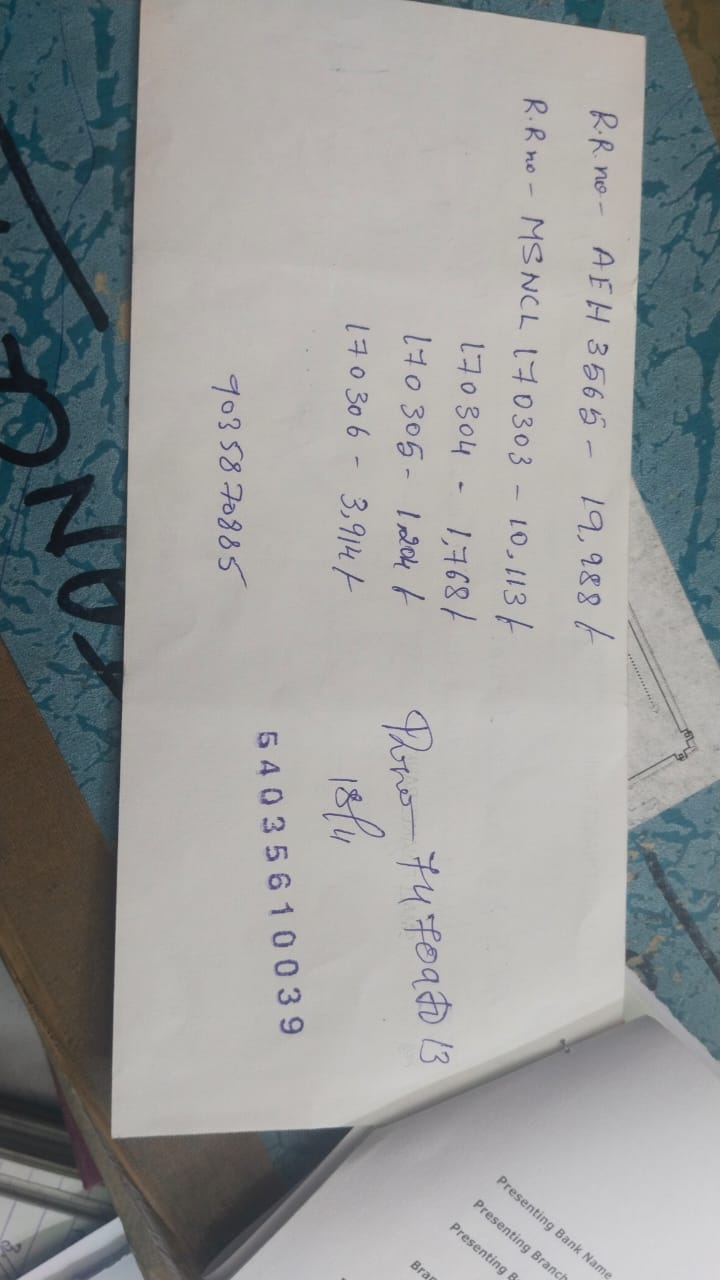 R.R. no - AEH 3565 - 19,988/-
R.R no - MSNCL 170303 - 10,113/-
170304 - 1,768/-
170305 - 1,204/-
170306 - 3,914/-
9035870885
18/11
54035610039
Presenting Bank Name
Presenting Branch
Presenting B
Bran